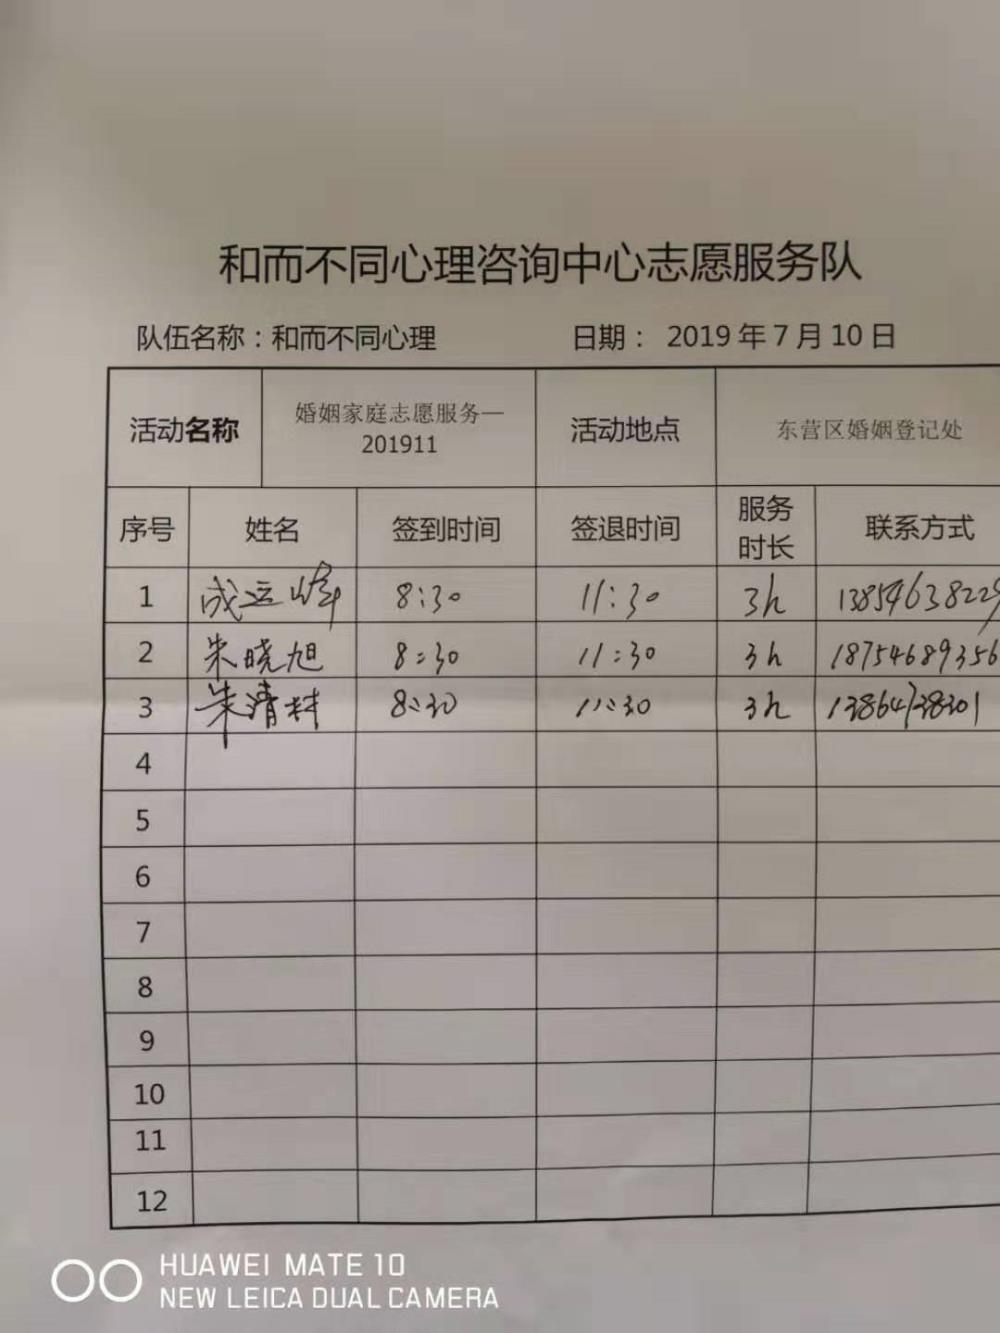 和而不同心理咨询中心志愿服务队
队伍名称：和而不同心理 日期： 2019 年 7 月 10 日
活动名称 婚姻家庭志愿服务—
201911 活动地点 东营区婚姻登记处
序号 姓名 签到时间 签退时间 服务
时长 联系方式
1 成运峰 8:30 11:30 3h 13854638229
2 朱晓旭 8:30 11:30 3h 18754689356
3 朱清 8:30 11:30 3h
4
5
6
7
8
9
10
11
12
HUAWEI MATE 10
NEW LEICA DUAL CAMERA